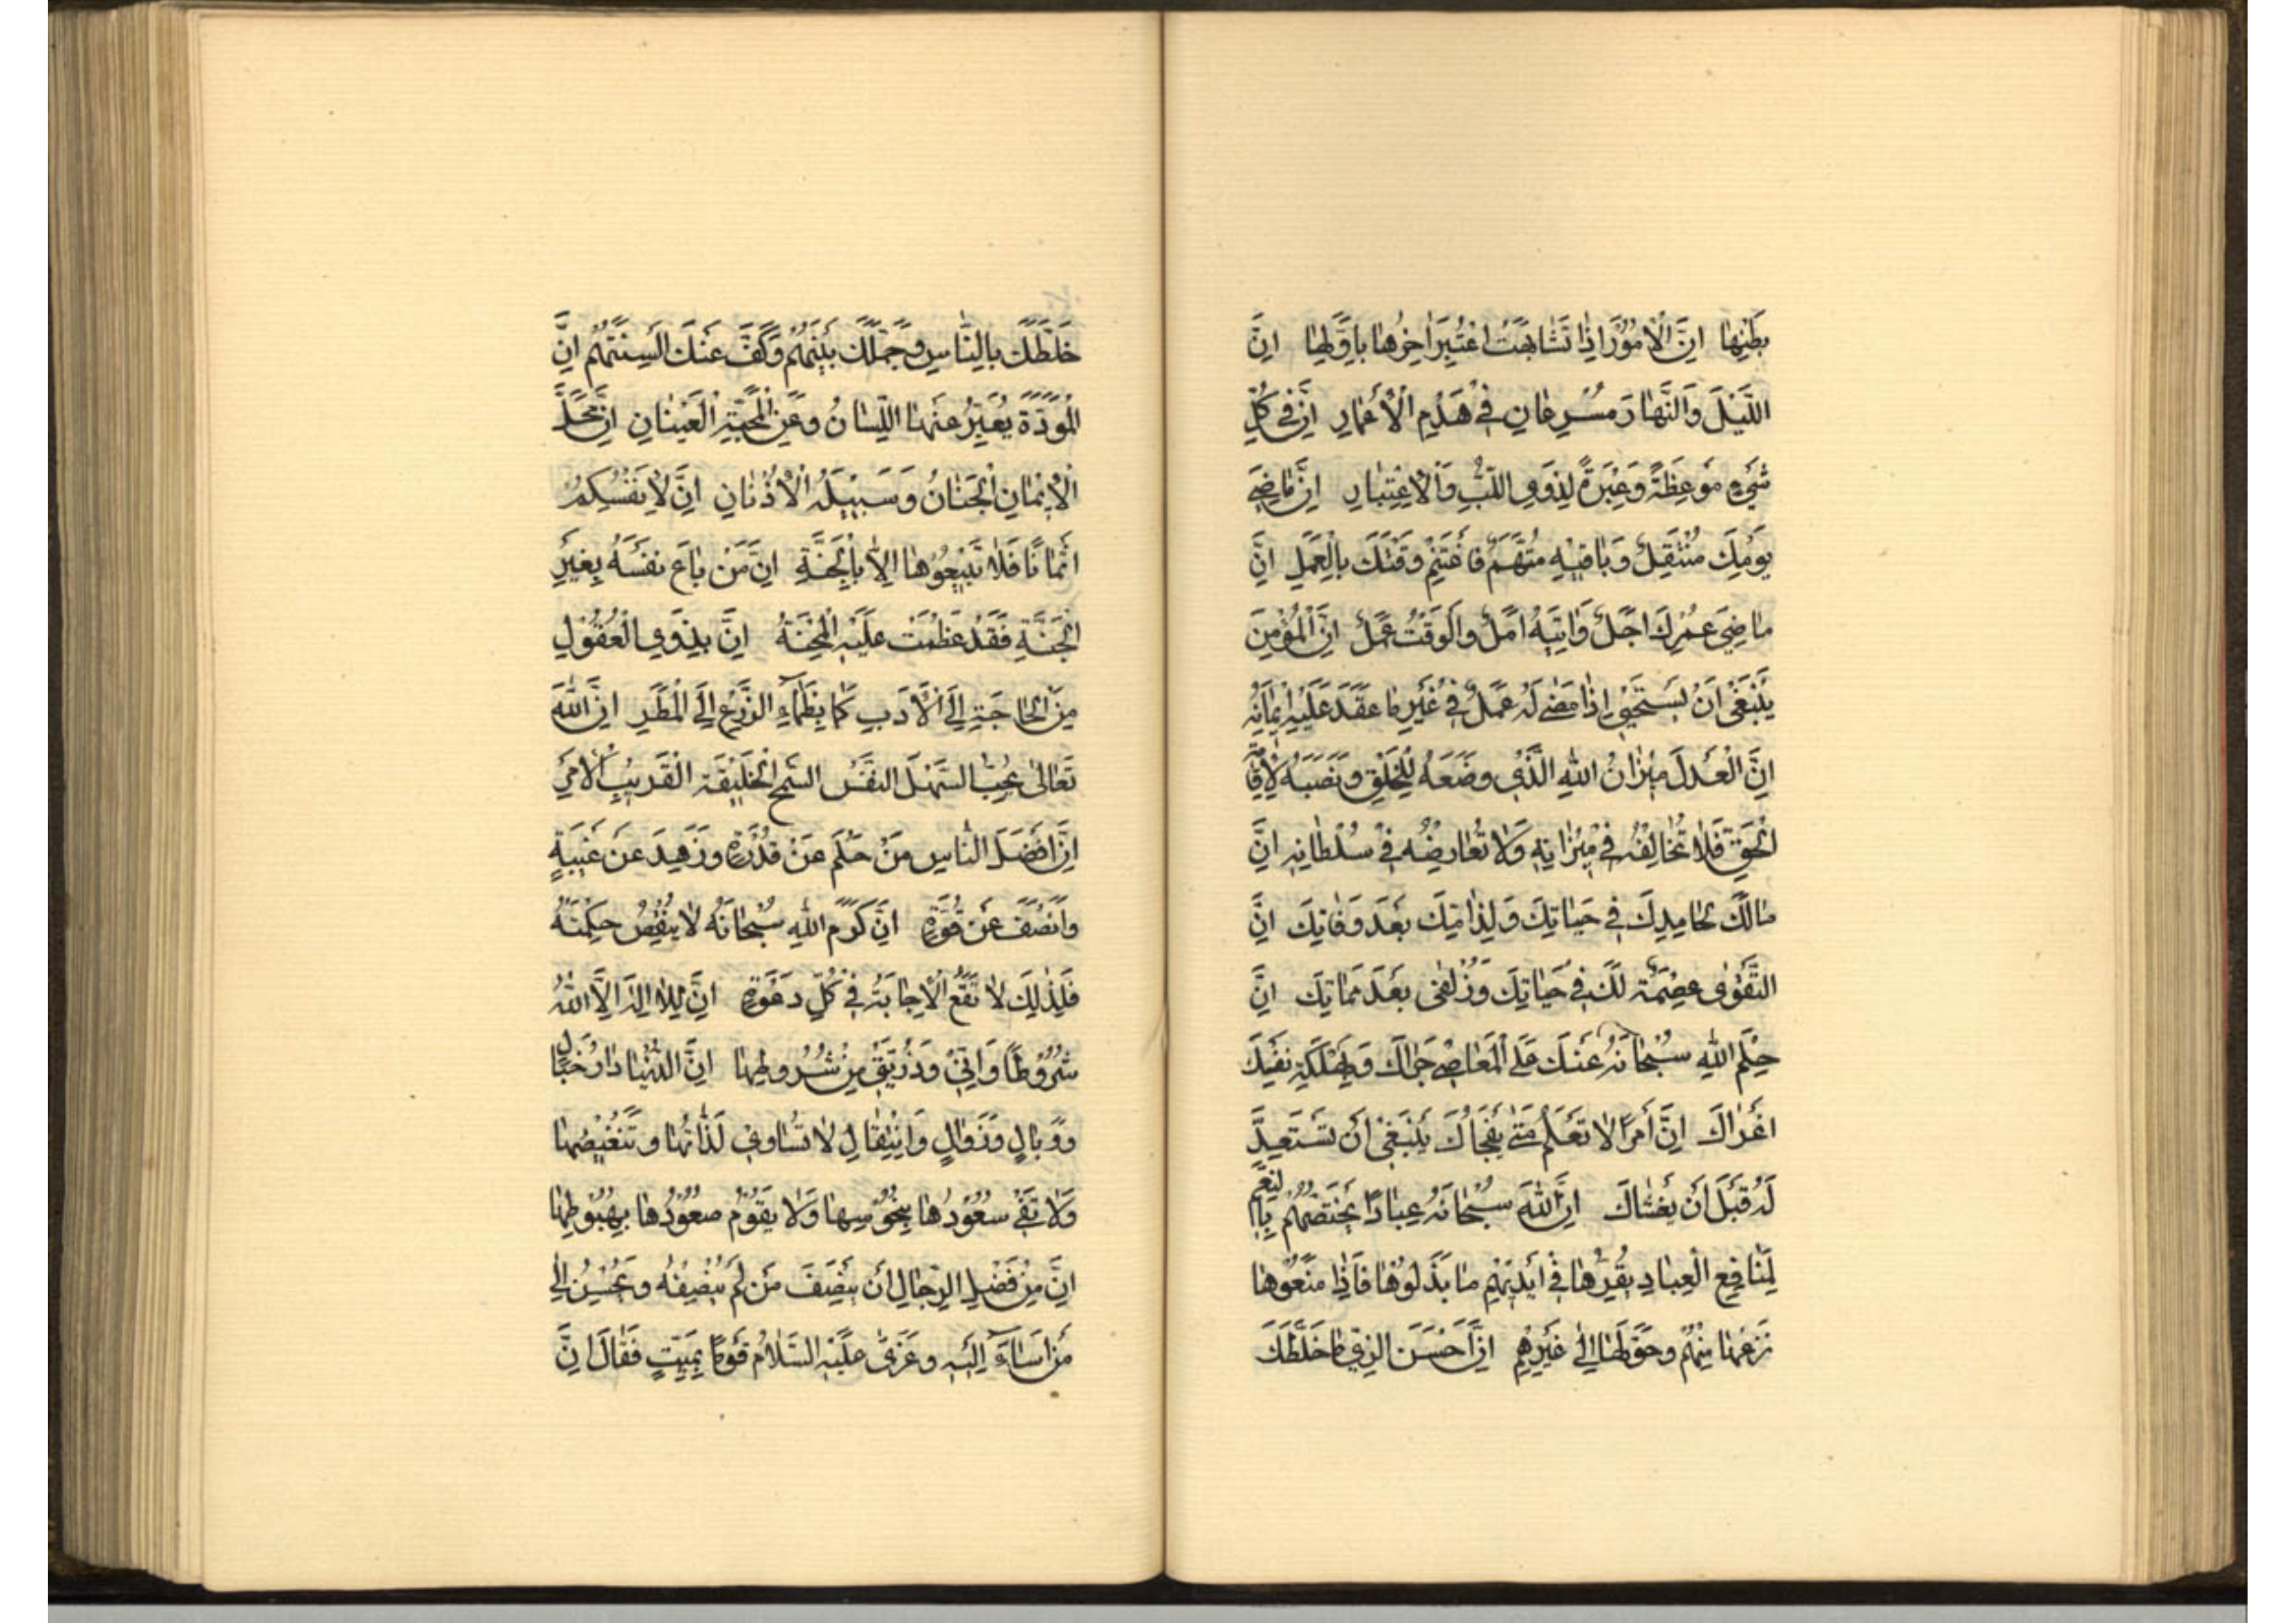 بَطْنِهَا اِنَّ الْاُمُوْرَ اِذَا تَشَابَهَتْ اعْتُبِرَ اٰخِرُهَا بِاَوَّلِهَا اِنَّ
اللَّيْلَ وَالنَّهَارَ مُسْرِعَانِ فِيْ هَدْمِ الْاَعْمَارِ اِنَّ فِيْ كُلِّ
شَيْءٍ مَوْعِظَةً وَعِبْرَةً لِذَوِي اللُّبِّ وَالْاِعْتِبَارِ اِنَّ مَاضِيَ
يَوْمِكَ مُنْتَقِلٌ وَبَاقِيْهِ مُتَّهَمٌ فَاغْتَنِمْ وَقْتَكَ بِالْعَمَلِ اِنَّ
مَاضِيَ عُمْرِكَ اَجَلٌ وَاٰتِيَهُ اَمَلٌ وَالْوَقْتُ عَمَلٌ اِنَّ الْمُؤْمِنَ
يَنْبَغِيْ اَنْ يَسْتَحْيِيَ اِذَا مَضٰى لَهُ عَمَلٌ فِيْ غَيْرِ مَا عَقَدَ عَلَيْهِ اِيْمَانُهُ
اِنَّ الْعَدْلَ مِيْزَانُ اللّٰهِ الَّذِيْ وَضَعَهُ لِلْخَلْقِ وَنَصَبَهُ لِاِقَامَةِ
الْحَقِّ فَلَا تُخَالِفْهُ فِيْ مِيْزَانِهِ وَلَا تُعَارِضْهُ فِيْ سُلْطَانِهِ اِنَّ
مَالَكَ لِحَامِدِكَ فِيْ حَيَاتِكَ وَلِذَامِّكَ بَعْدَ وَفَاتِكَ اِنَّ
التَّقْوٰى عِصْمَةٌ لَكَ فِيْ حَيَاتِكَ وَزُلْفٰى بَعْدَ مَمَاتِكَ اِنَّ
حِلْمَ اللّٰهِ سُبْحَانَهُ عَنْكَ عَلَى الْمَعَاصِيْ جَرَّاكَ وَبِهَلَكَةِ نَفْسِكَ
اَغْرَاكَ اِنَّ اَمْرًا لَا تَعْلَمُ مَتٰى يَفْجَاُكَ يَنْبَغِيْ اَنْ تَسْتَعِدَّ
لَهُ قَبْلَ اَنْ يَغْشَاكَ اِنَّ اللّٰهَ سُبْحَانَهُ عِبَادًا يَخْتَصُّهُمْ بِالنِّعَمِ
لِمَنَافِعِ الْعِبَادِ يُقِرُّهَا فِيْ اَيْدِيْهِمْ مَا بَذَلُوْهَا فَاِذَا مَنَعُوْهَا
نَزَعَهَا مِنْهُمْ وَحَوَّلَهَا اِلٰى غَيْرِهِمْ اِنَّ اَحْسَنَ الزِّيِّ مَا خَلَطَكَ
خَلَطَكَ بِالنَّاسِ وَجَمَّلَكَ بَيْنَهُمْ وَكَفَّ عَنْكَ اَلْسِنَتَهُمْ اِنَّ
الْمَوَدَّةَ يُعَبِّرُ عَنْهَا اللِّسَانُ وَعَنِ الْمَحَبَّةِ الْعَيْنَانِ اِنَّ مَحَلَّ
الْاِيْمَانِ الْجَنَانُ وَسَبِيْلَهُ الْاُذُنَانِ اِنَّ لِاَنْفُسِكُمْ
اَثْمَانًا فَلَا تَبِيْعُوْهَا اِلَّا بِالْجَنَّةِ اِنَّ مَنْ بَاعَ نَفْسَهُ بِغَيْرِ
الْجَنَّةِ فَقَدْ عَظُمَتْ عَلَيْهِ الْمِحْنَةُ اِنَّ بِذَوِي الْعُقُوْلِ
مِنَ الْحَاجَةِ اِلَى الْاَدَبِ كَمَا يَظْمَاُ الزَّرْعُ اِلَى الْمَطَرِ اِنَّ اللّٰهَ
تَعَالٰى يُحِبُّ السَّهْلَ النَّفْسِ السَّمْحَ الْخَلِيْقَةِ الْقَرِيْبَ الْاَمْرِ
اِنَّ اَفْضَلَ النَّاسِ مَنْ حَلُمَ عَنْ قُدْرَةٍ وَزَهِدَ عَنْ غَيْبَةٍ
وَاَنْصَفَ عَنْ قُوَّةٍ اِنَّ كَرَمَ اللّٰهِ سُبْحَانَهُ لَا يَنْقُضُ حِكْمَتَهُ
فَلِذٰلِكَ لَا تَقَعُ الْاِجَابَةُ فِيْ كُلِّ دَعْوَةٍ اِنَّ لِلَا اِلٰهَ اِلَّا اللّٰهُ
شُرُوْطًا وَاِنِّيْ وَذُرِّيَّتِيْ مِنْ شُرُوْطِهَا اِنَّ الدُّنْيَا دَارُ خَبَالٍ
وَوَبَالٍ وَزَوَالٍ وَانْتِقَالٍ لَا تُسَاوِيْ لَذَّاتُهَا وَتَنْغِيْصَهَا
وَلَا تَفِيْ سُعُوْدُهَا بِنُحُوْسِهَا وَلَا يَقُوْمُ صُعُوْدُهَا بِهُبُوْطِهَا
اِنَّ مِنْ فَضْلِ الرِّجَالِ اَنْ يُنْصِفَ مَنْ لَمْ يُنْصِفْهُ وَيُحْسِنُ اِلٰى
مَنْ اَسَاءَ اِلَيْهِ وَعَزّٰى عَلَيْهِ السَّلَامُ قَوْمًا بِمَيِّتٍ فَقَالَ اِنَّ